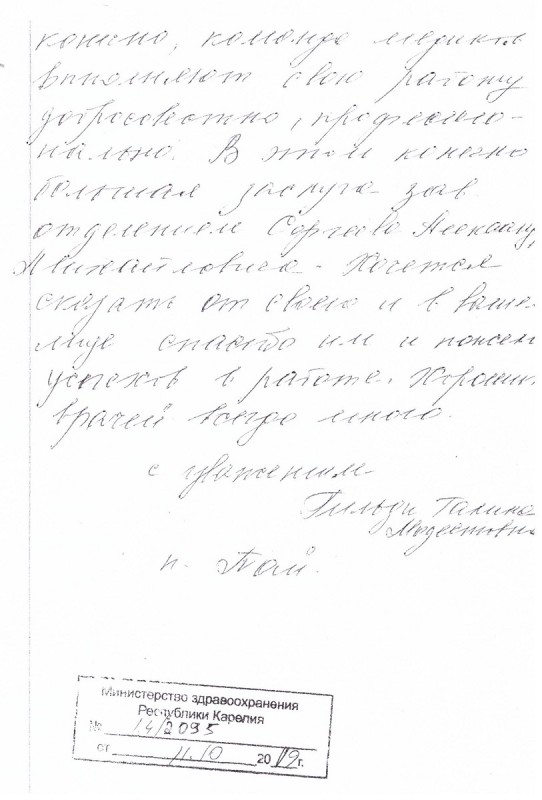 конечно, команда медиков
выполняют свою работу
добросовестно, професcио-
нально. В этом конечно
большая заслуга зав.
отделением Сергеева Александ
Михайловича. Хочется
сказать от своего и в вашем
лице спасибо им и пожел
успехов в работе. Хороших
врачей всегда много.
с уважением.
Галина
Модестовна
п. Пай.
Министерство здравоохранения
Республики Карелия
№ 14/2095
от 11.10 2019г.